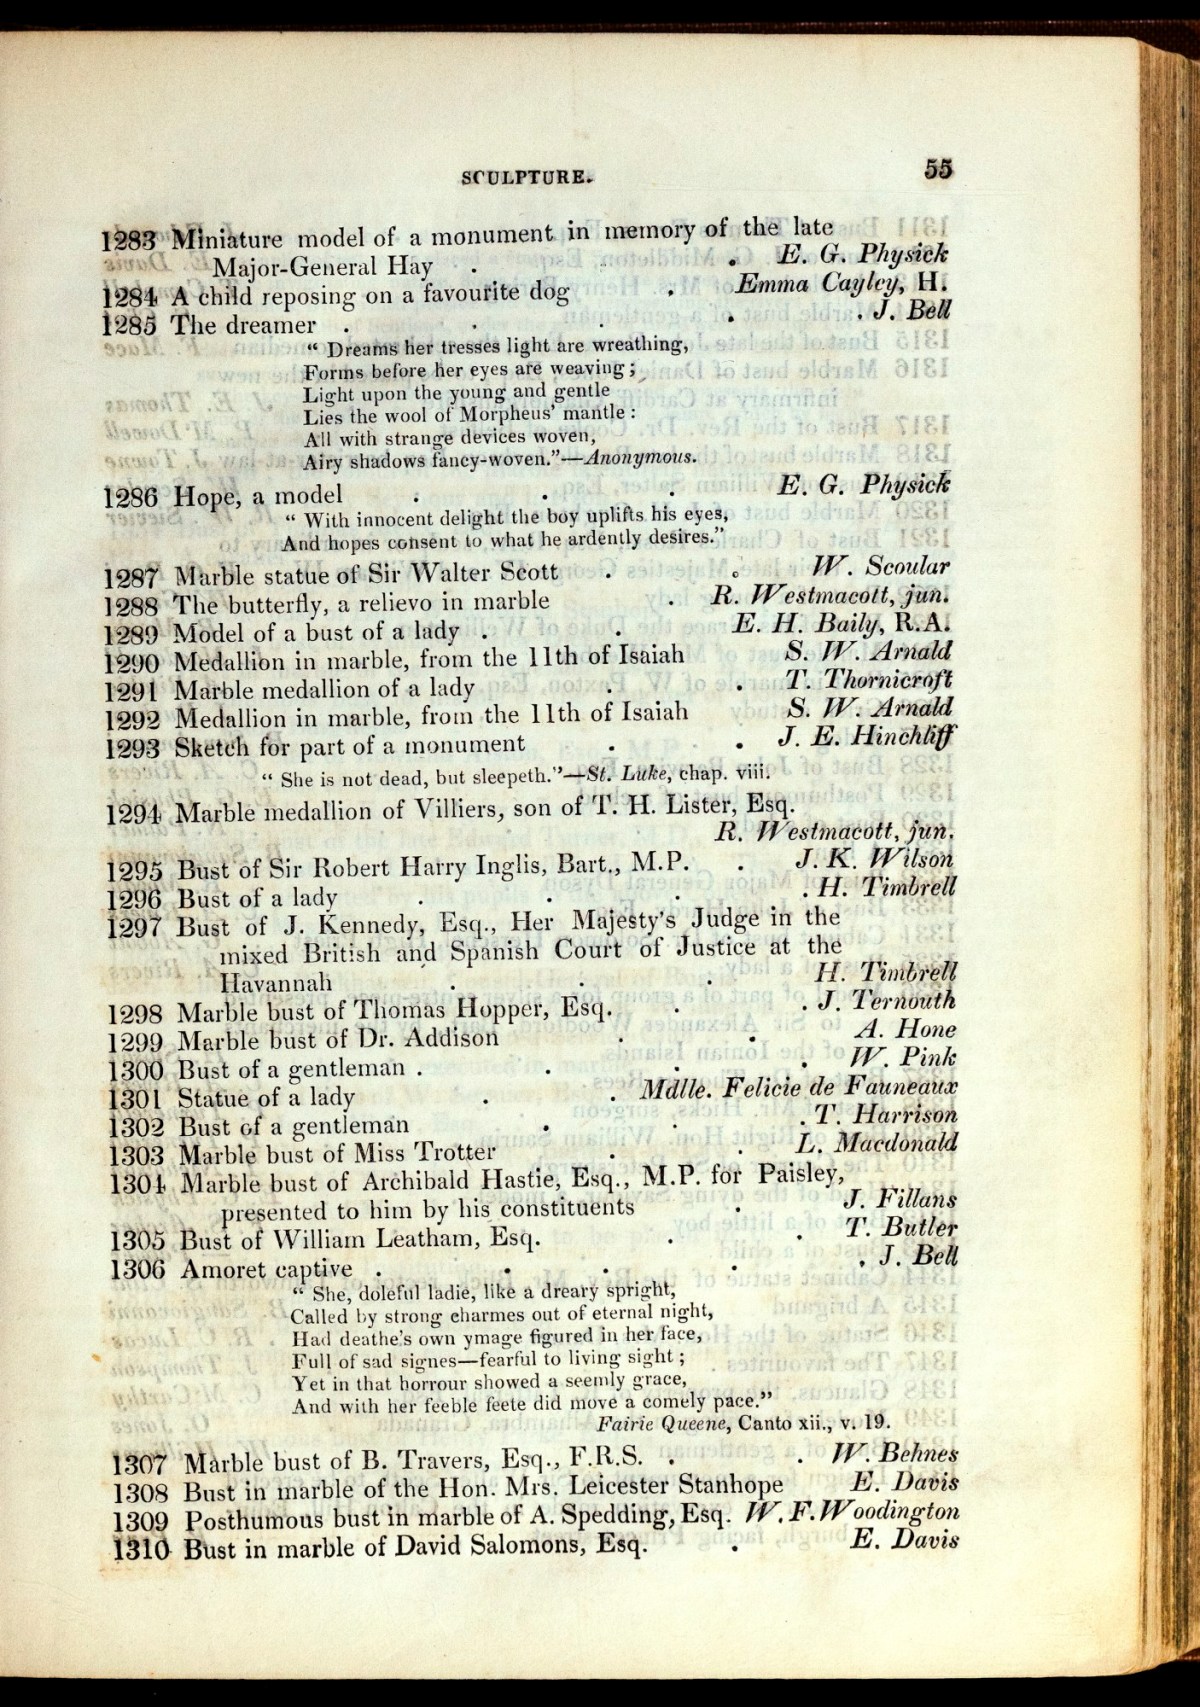 SCULPTURE. 55
1283 Miniature model of a monument in memory of the late
Major-General Hay . . E. G. Physick
1284 A child reposing on a favourite dog . Emma Cayley, H.
1285 The dreamer . . . . . J. Bell
“ Dreams her tresses light are wreathing,
Forms before her eyes are weaving ;
Light upon the young and gentle
Lies the wool of Morpheus’ mantle :
All with strange devices woven,
Airy shadows fancy-woven.”—Anonymous.
1286 Hope, a model . . . E. G. Physick
“ With innocent delight the boy uplifts his eyes,
And hopes consent to what he ardently desires.”
1287 Marble statue of Sir Walter Scott . . W. Scoular
1288 The butterfly, a relievo in marble . R. Westmacott, jun.
1289 Model of a bust of a lady . . E. H. Baily, R.A.
1290 Medallion in marble, from the 11th of Isaiah S. W. Arnald
1291 Marble medallion of a lady . . T. Thornicroft
1292 Medallion in marble, from the 11th of Isaiah S. W. Arnald
1293 Sketch for part of a monument . . J. E. Hinchliff
“ She is not dead, but sleepeth.”—St. Luke, chap. viii.
1294 Marble medallion of Villiers, son of T. H. Lister, Esq.
R. Westmacott, jun.
1295 Bust of Sir Robert Harry Inglis, Bart., M.P. . J. K. Wilson
1296 Bust of a lady . . . . H. Timbrell
1297 Bust of J. Kennedy, Esq., Her Majesty’s Judge in the
mixed British and Spanish Court of Justice at the
Havannah . . . H. Timbrell
1298 Marble bust of Thomas Hopper, Esq. . . J. Ternouth
1299 Marble bust of Dr. Addison . . A. Hone
1300 Bust of a gentleman . . . . W. Pink
1301 Statue of a lady . . Mdlle. Felicie de Fauneaux
1302 Bust of a gentleman . . . T. Harrison
1303 Marble bust of Miss Trotter . . L. Macdonald
1304 Marble bust of Archibald Hastie, Esq., M.P. for Paisley,
presented to him by his constituents . J. Fillans
1305 Bust of William Leatham, Esq. . . T. Butler
1306 Amoret captive . . . . . J. Bell
“ She, doleful ladie, like a dreary spright,
Called by strong charmes out of eternal night,
Had deathe’s own ymage figured in her face,
Full of sad signes—fearful to living sight ;
Yet in that horrour showed a seemly grace,
And with her feeble feete did move a comely pace.”
Fairie Queene, Canto xii., v. 19.
1307 Marble bust of B. Travers, Esq., F.R.S. . . W. Behnes
1308 Bust in marble of the Hon. Mrs. Leicester Stanhope E. Davis
1309 Posthumous bust in marble of A. Spedding, Esq. W. F. Woodington
1310 Bust in marble of David Salomons, Esq. . E. Davis